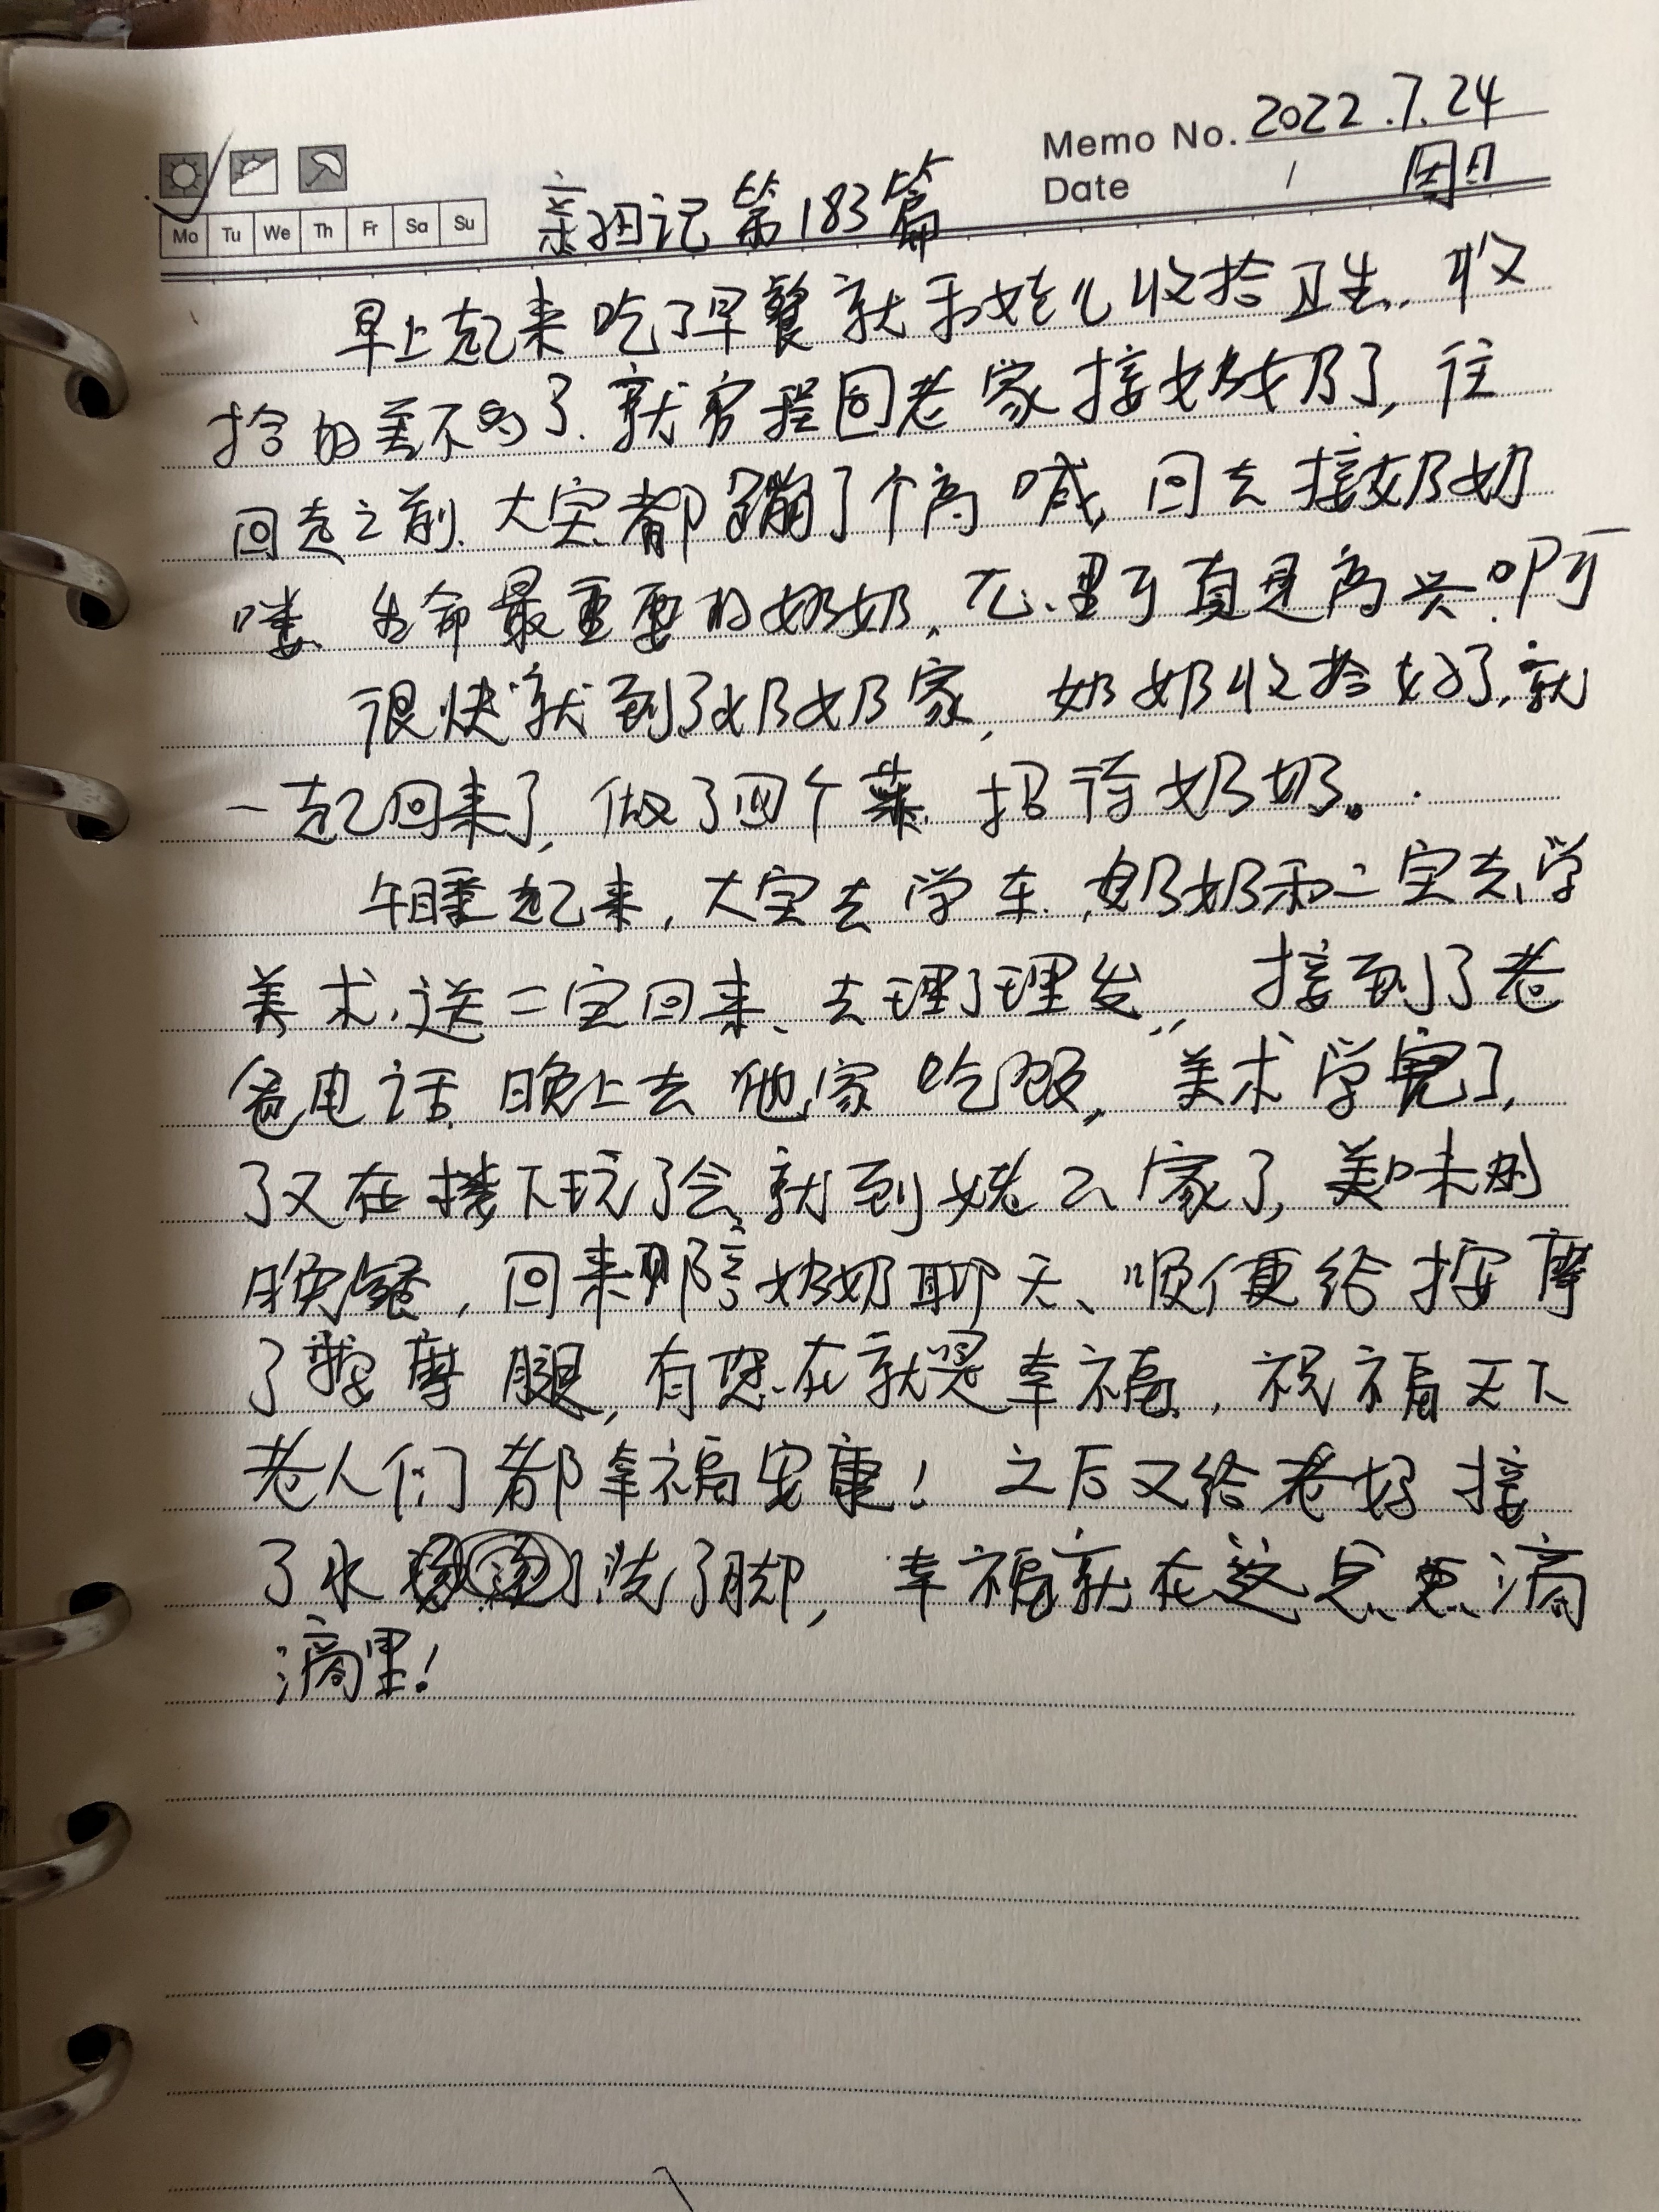 Memo No. 2022.7.24
Date / 周日
Mo Tu We Th Fr Sa Su
亲姻记第183篇
早上起来吃了早餐就和娃儿收拾卫生,收
拾的差不多了.就穿捏回老家接奶奶了,往
回走之前、大宝都蹦了个高喊,回去接奶奶
喽、生命最重要的奶奶,心里可真是高兴啊
很快就到了奶奶家,奶奶收拾好了,就
一起回来了,做了四个菜、招待奶奶。
午睡起来,大宝去学车,奶奶和二宝去学
美术,送二宝回来、去理了理发,接到了老
爸电话、晚上去他家吃饭,美术学完了,
了又在楼下玩了会,就到姥么家了,美味的
晚餐,回来陪奶奶聊天、顺便给按摩
了按摩腿,有您在就是幸福,祝福天下
老人们都幸福安康!之后又给老妈接
了水 洗了脚,幸福就在这点点滴
滴里!